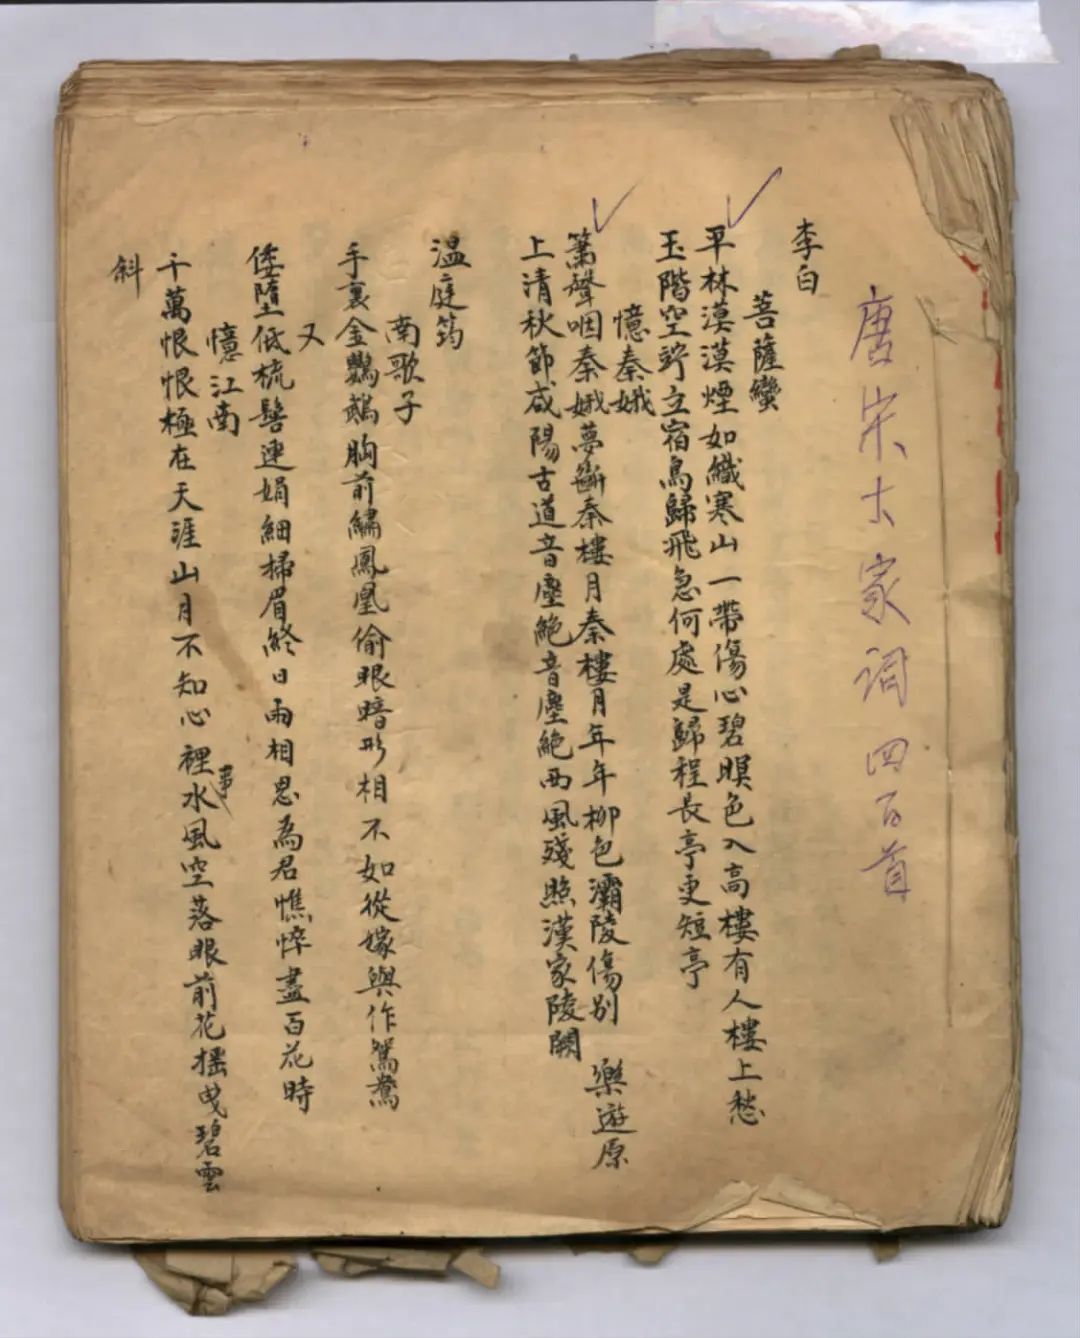 唐宋大家词 四百首
李白
菩薩蠻
平林漠漠煙如織寒山一帶傷心碧暝色入高樓有人樓上愁
玉階空竚立宿鳥歸飛急何處是歸程長亭更短亭
憶秦娥
簫聲咽秦娥夢斷秦樓月秦樓月年年柳色灞陵傷别 樂遊原
上清秋節咸陽古道音塵絶音塵絶西風殘照漢家陵闕
温庭筠
南歌子
手裏金鸚鵡胸前繡鳳凰偷眼暗形相不如從嫁與作鴛鴦
又
倭墮低梳髻連娟細掃眉終日兩相思為君憔悴盡百花時
憶江南
千萬恨恨極在天涯山月不知心裡事水風空落眼前花摇曳碧雲
斜